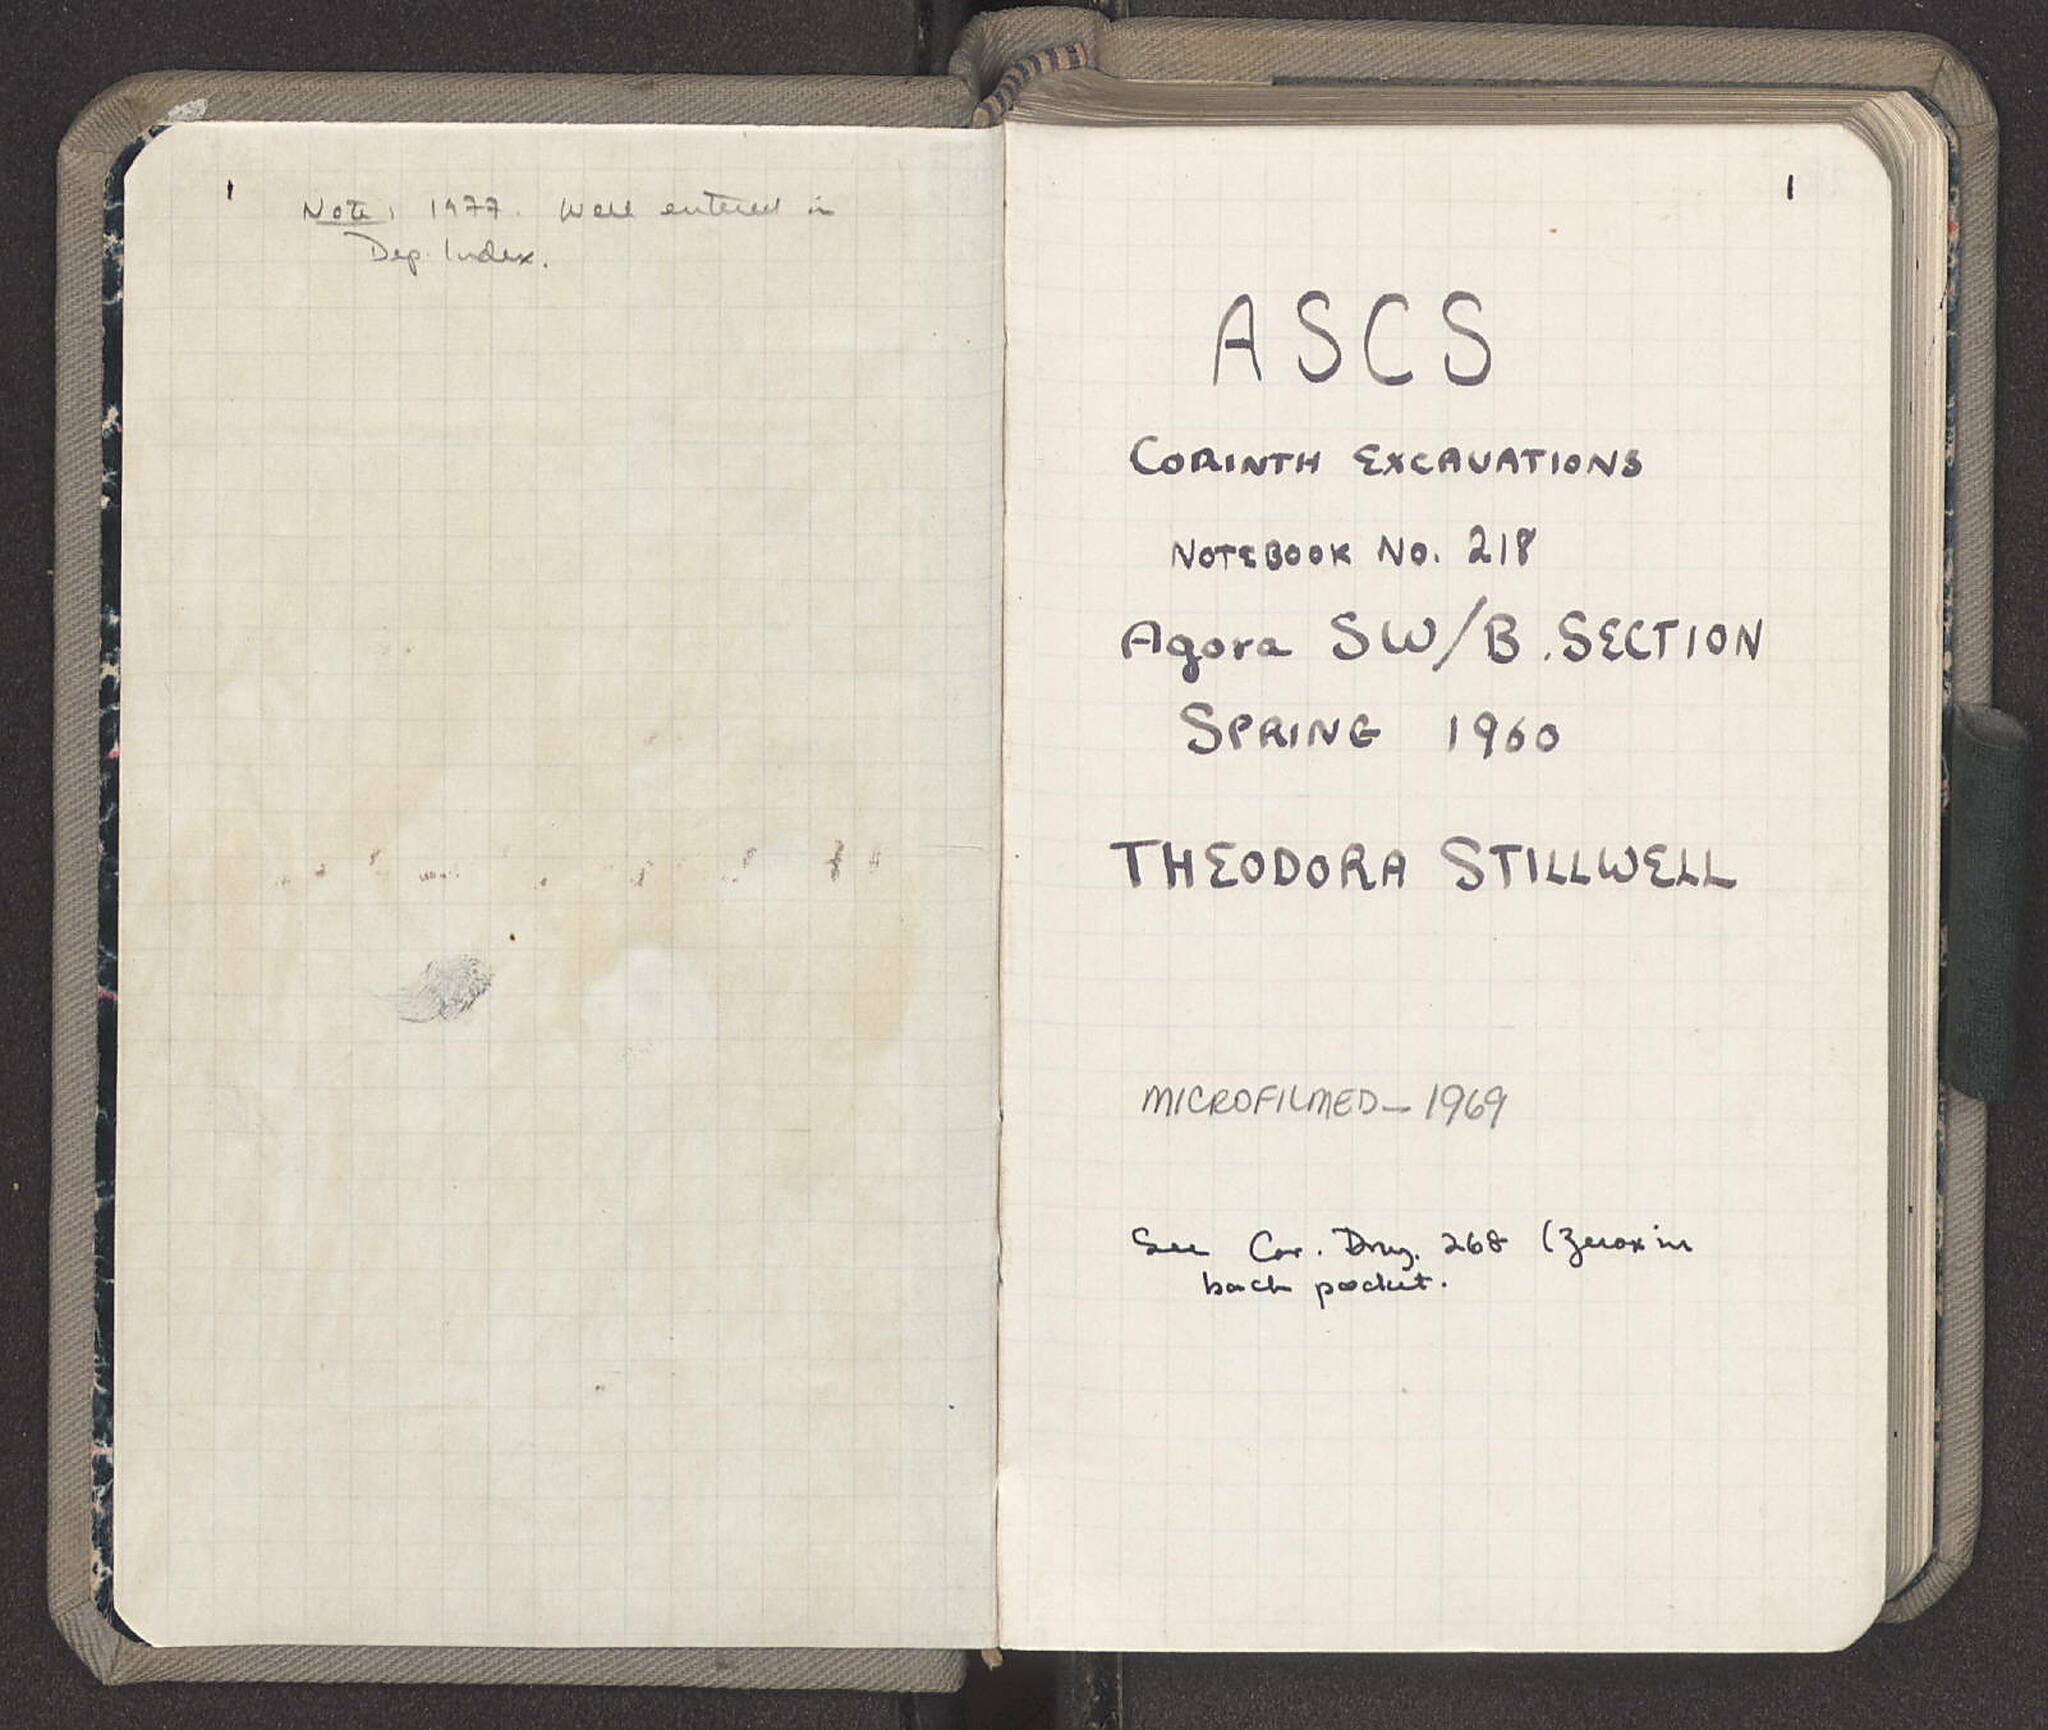 1
Note: 1977. Well entered in
Dep. Index.
1
ASCS
CORINTH EXCAVATIONS
NOTEBOOK NO. 218
Agora SW/B. SECTION
SPRING 1960
THEODORA STILLWELL
MICROFILMED - 1969
See Cor. Drwg. 268 (Zerox in
back pocket.